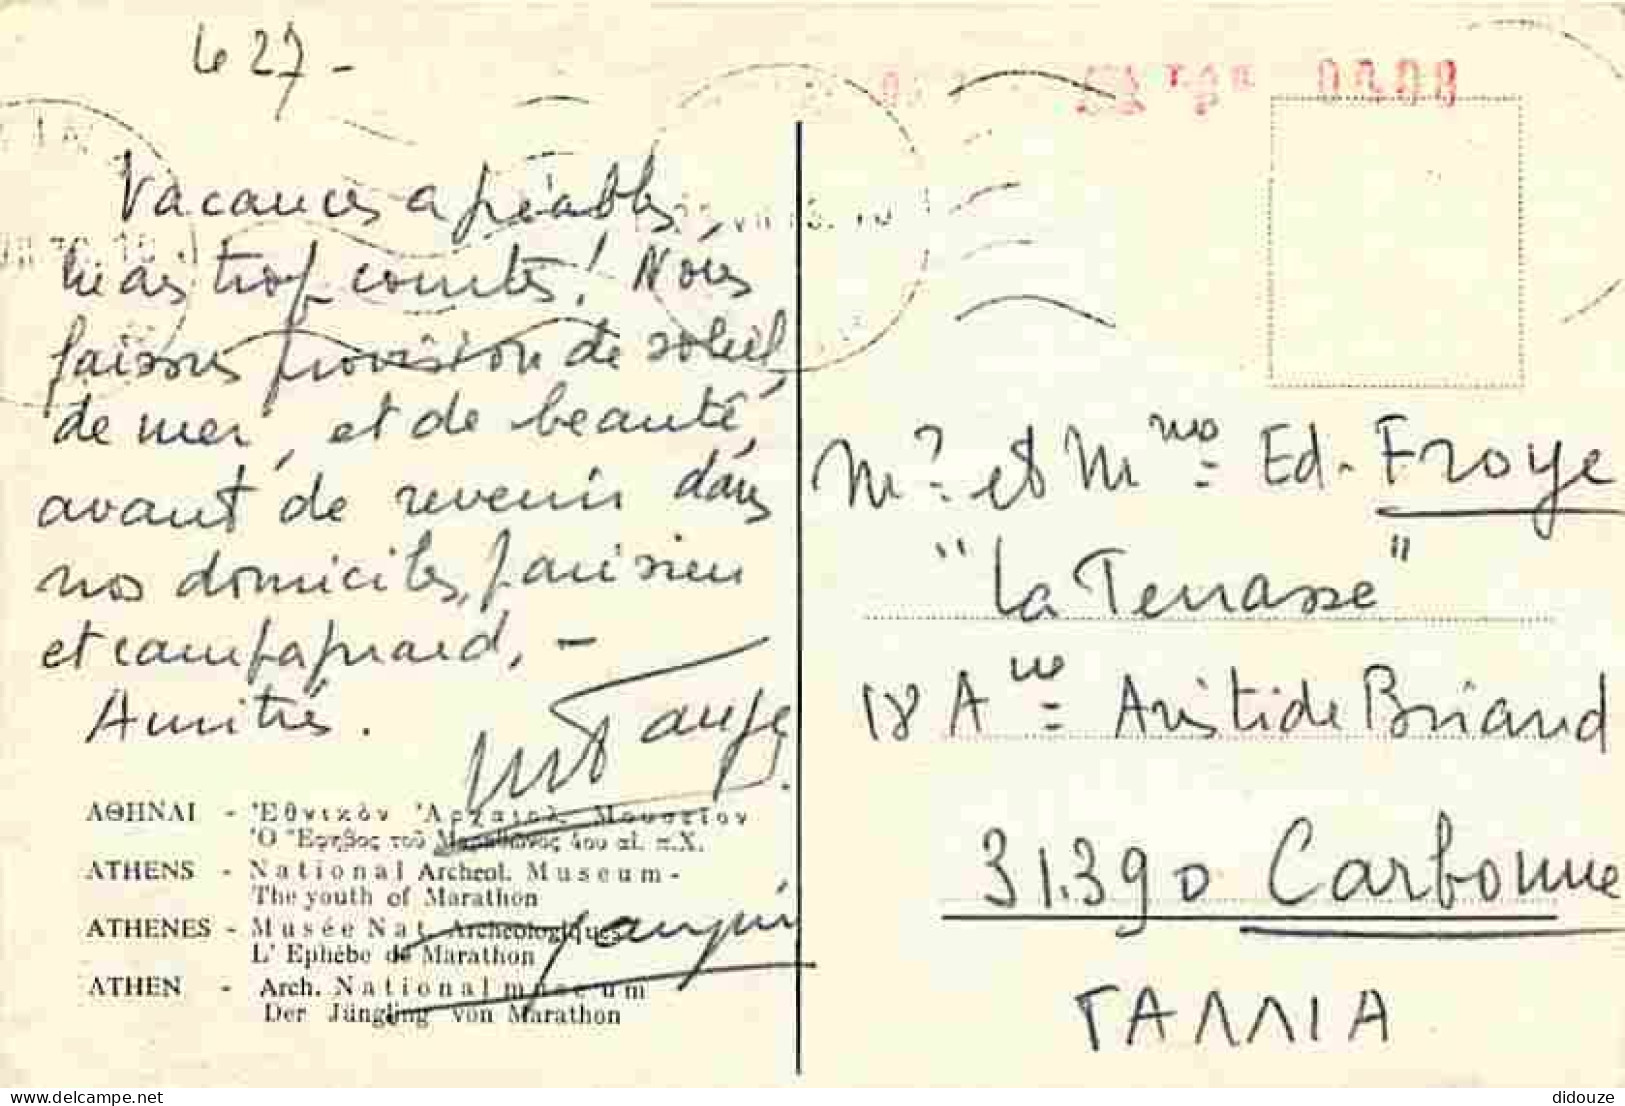 le 27 -
Vacances agréables,
hélas trop courtes! Nous
faisons provision de soleil,
de mer, et de beauté,
avant de revenir dans
nos domiciles, parisien
et campagnard. -
Amitiés.
ΑΘΗΝΑΙ - Ἐθνικὸν Ἀρχαιολ. Μουσεῖον
Ὁ Ἔφηβος τοῦ Μαραθῶνος 4ου αἰ. π.Χ.
ATHENS - National Archeol. Museum -
The youth of Marathon
ATHENES - Musée Nat. Archéologiques
L' Ephèbe de Marathon
ATHEN - Arch. National museum
Der Jüngling von Marathon
Mr et Mme Ed. Froye
"La Terrasse"
18 Ave Aristide Briand
31.390 Carbonne
ΓΑΛΛΙΑ
didouze